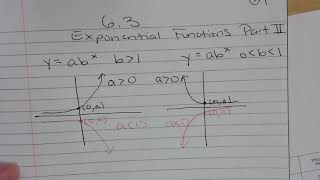 6.3
Exponential Functions Part II
y=abˣ b>1 y=abˣ 0<b<1
a>0 a>0
(0,a) (0,a)
(0,a) (0,a)
a<0 a<0